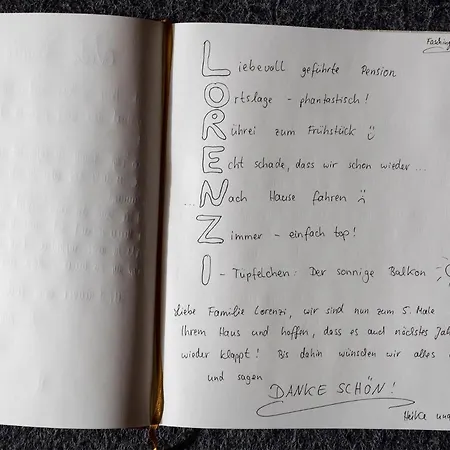 Fasching
Liebevoll geführte Pension
Ortslage - phantastisch!
Rührei zum Frühstück
Echt schade, dass wir schon wieder ...
... Nach Hause fahren
Zimmer - einfach top!
I - Tüpfelchen: Der sonnige Balkon
Liebe Familie Lorenzi, wir sind nun zum 5. Male
Ihrem Haus und hoffen, dass es auch nächstes Jah
wieder klappt! Bis dahin wünschen wir alles
und sagen
DANKE SCHÖN!
Heika und